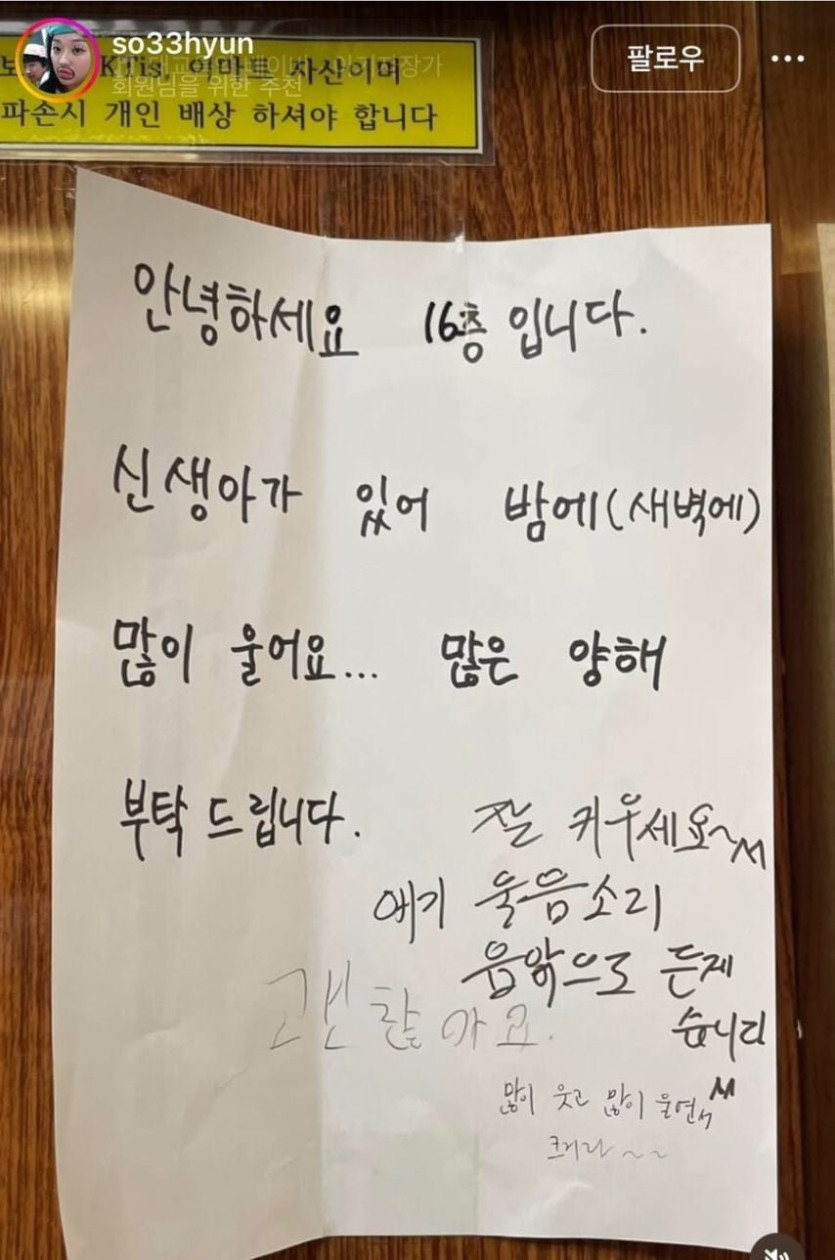 so33hyun
팔로우
자산이며
회원님을 위한 추천
파손시 개인 배상 하셔야 합니다
안녕하세요 16층 입니다.
신생아가 있어 밤에(새벽에)
많이 울어요... 많은 양해
부탁 드립니다.
잘 키우세요~^^
애기 울음소리
음악으로 듣게
습니다
괜찮아요.
많이 웃고 많이 울면서
크거라~~